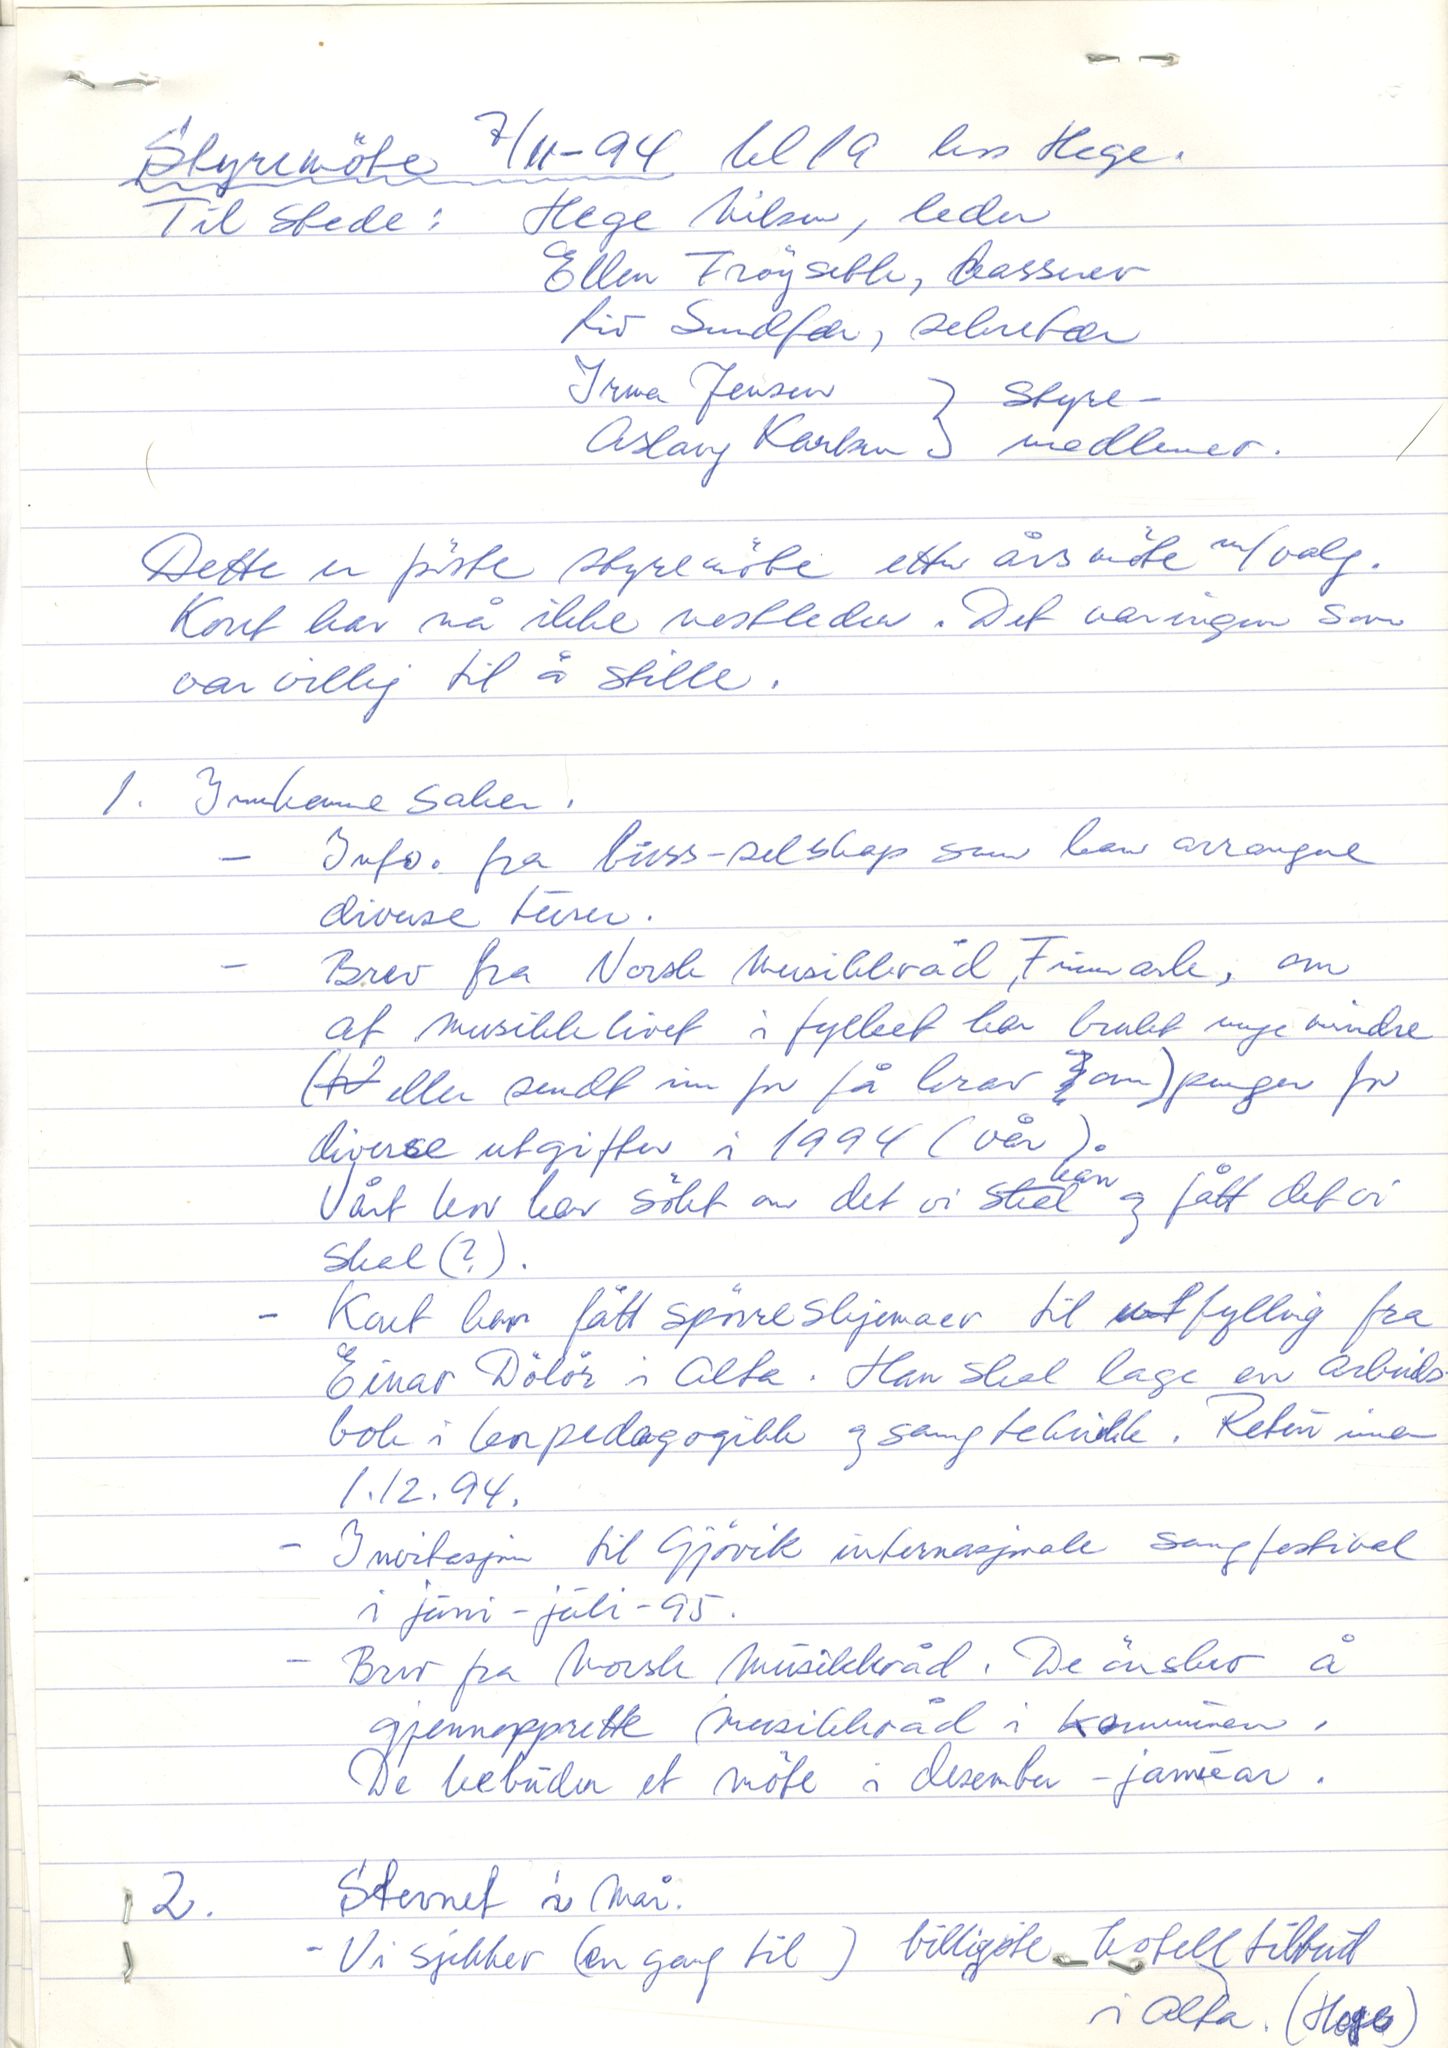 Styremöte 7/11-94 kl 19 hos Hege.
Til stede: Hege Nilsen, leder
Ellen Fröyseth, kasserer
Liv Sundfær, sekretær
Irma Jensen } styre-
Aslaug Karlsen } medlemmer.
Dette er første styremöte etter årsmöte m/valg.
Koret har nå ikke nestleder. Det var ingen som
var villig til å stille.
1. Innkomne saker.
- Info. fra buss-selskap som kan arrangere
diverse turer.
- Brev fra Norsk Musikkråd, Finnmark, om
at musikklivet i fylket har brukt mye mindre
(eller sendt inn for få krav om) penger for
diverse utgifter i 1994 (vår).
Vårt kor har sökt om det vi skal kan og fått det vi
skal (?).
- Koret har fått spörreskjemaer til utfylling fra
Einar Dölör i Alta. Han skal lage en arbeids-
bok i korpedagogikk og sangteknikk. Retur innen
1.12.94.
- Invitasjon til Gjövik internasjonale sangfestival
i juni-juli-95.
- Brev fra Norsk Musikkråd. De önsker å
gjennopprette musikkråd i kommunen.
De bebuder et möte i desember - januar.
2. Stevnet i mai.
- Vi sjekker (en gang til) billigste hotelltilbud
i Alta. (Hege)